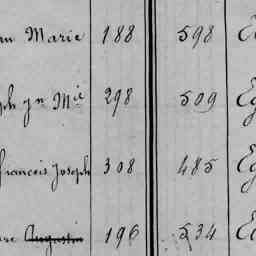 Marie 188 598
ph jn Mie 298 509
francois Joseph 308 485
Augustin 196 534